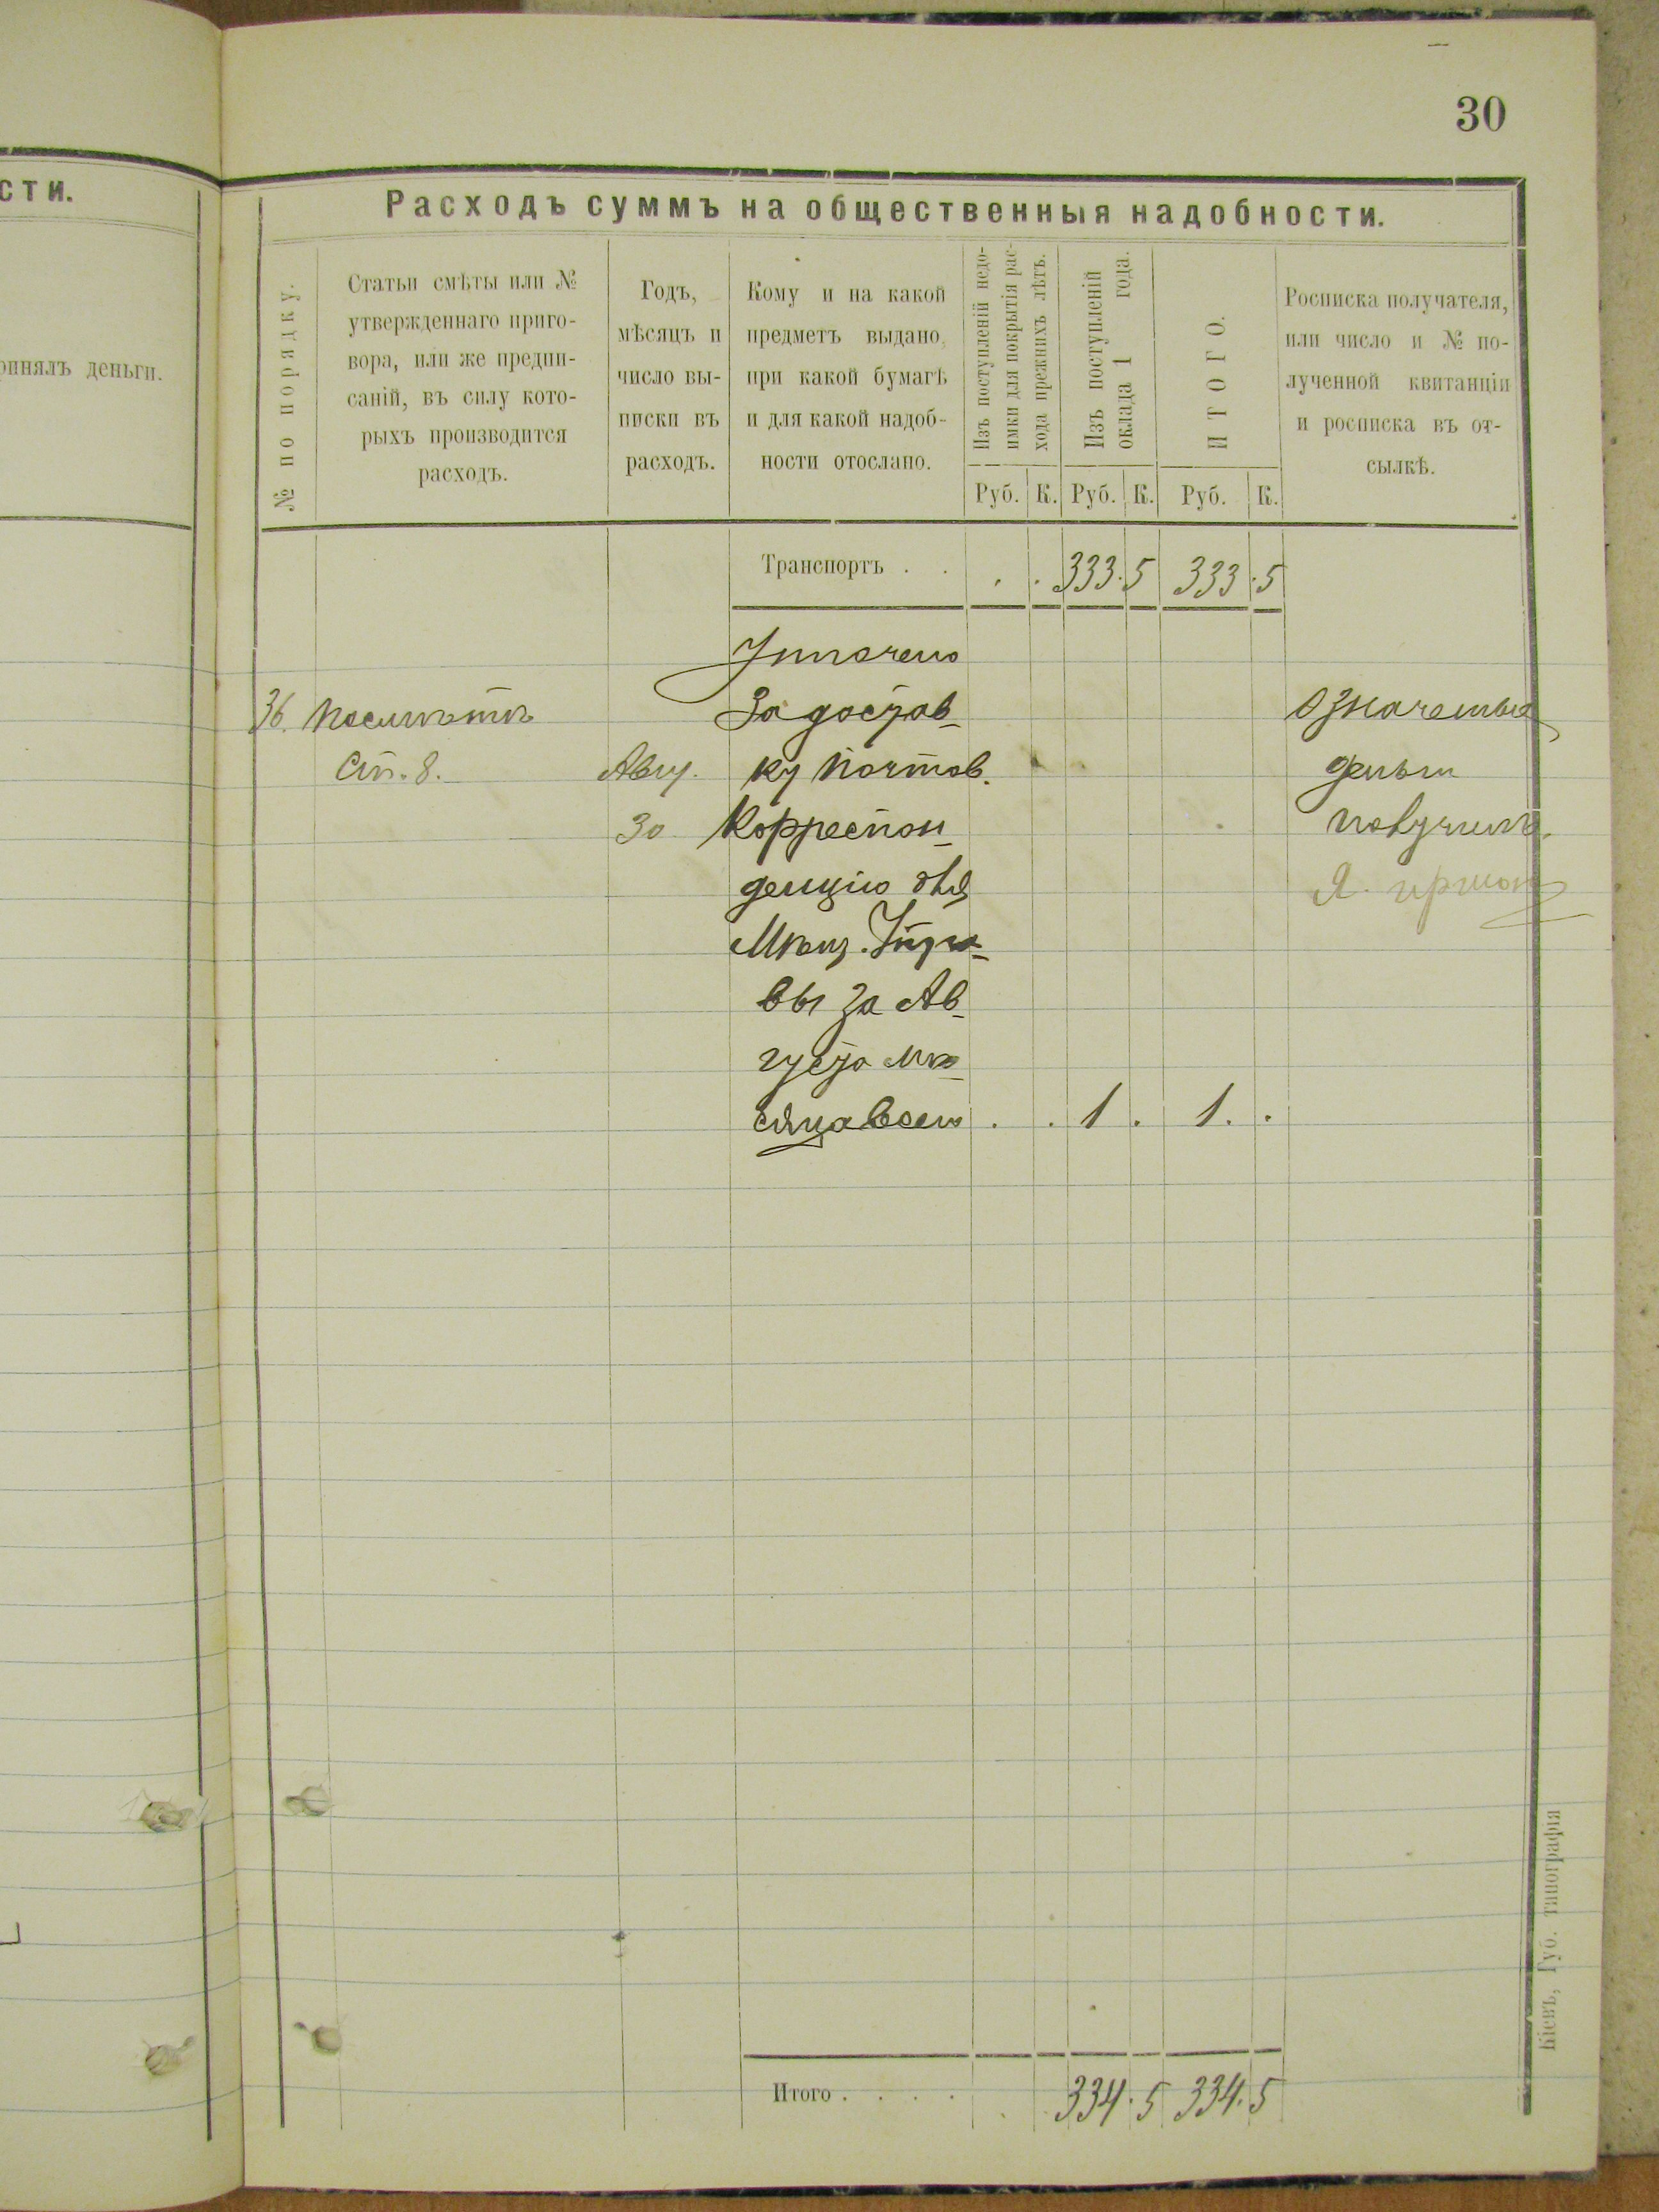 сти.
ринялъ деньги.
30
Расходъ суммъ на общественныя надобности.
№ по порядку.
Статьи смѣты или №
утвержденнаго приго-
вора, или же предпи-
саній, въ силу кото-
рыхъ производится
расходъ.
Годъ,
мѣсяцъ и
число вы-
писки въ
расходъ.
Кому и на какой
предметъ выдано,
при какой бумагѣ
и для какой надоб-
ности отослано.
Изъ поступленій недо-
имки для покрытія рас-
хода прежнихъ лѣтъ.
Изъ поступленій
оклада 1 года.
ИТОГО.
Росписка получателя,
или число и № по-
лученной квитанціи
и росписка въ от-
сылкѣ.
Руб. К. Руб. К. Руб. К.
Транспортъ . . . . 333. 5 333. 5
Уплочено
36. По смѣтѣ За достав- Означеные
Ст. 8. Авгу. ку Почтов. деньги
30 Корреспон- получилъ
денцію для Я.
Мѣщ. Упра-
вы за Ав-
густа мѣ-
сяца всего . . 1 . 1. .
Итого . . . . 334. 5 334. 5
Кіевъ, Губ. типографія